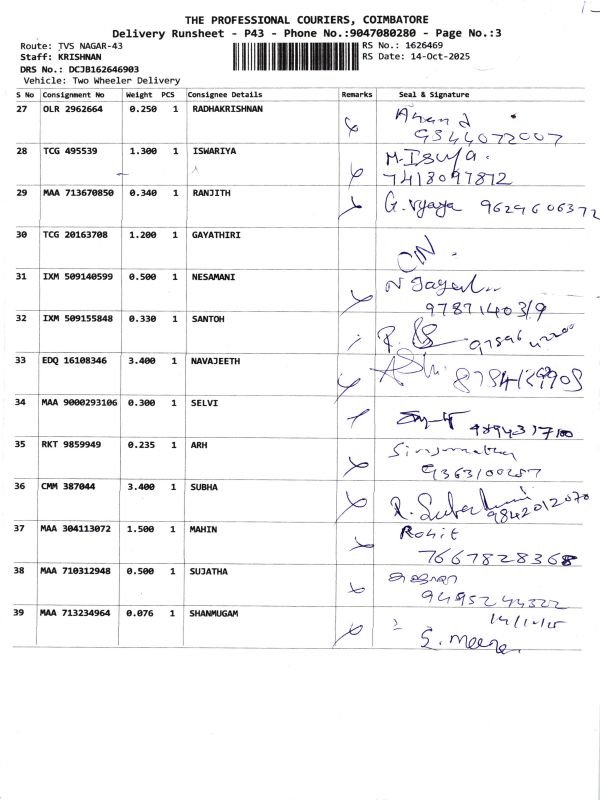 THE PROFESSIONAL COURIERS, COIMBATORE
Delivery Runsheet - P43 - Phone No.:9047080280 - Page No.:3
Route: TVS NAGAR-43
RS No.: 1626469
Staff: KRISHNAN
RS Date: 14-Oct-2025
DRS No.: DCJB162646903
Vehicle: Two Wheeler Delivery
S No Consignment No Weight PCS Consignee Details Remarks Seal & Signature
27 OLR 2962664 0.250 1 RADHAKRISHNAN Anand
9344072007
28 TCG 495539 1.300 1 ISWARIYA
7418097872
29 MAA 713670850 0.340 1 RANJITH G. Vijaya 9629606372
30 TCG 20163708 1.200 1 GAYATHIRI
31 IXM 509140599 0.500 1 NESAMANI
9787140319
32 IXM 509155848 0.330 1 SANTOH
33 EDQ 16108346 3.400 1 NAVAJEETH
34 MAA 9000293106 0.300 1 SELVI
35 RKT 9859949 0.235 1 ARH
9363100257
36 CMM 387044 3.400 1 SUBHA
9842012070
37 MAA 304113072 1.500 1 MAHIN Rohit
7667828368
38 MAA 710312948 0.500 1 SUJATHA
9495244322
39 MAA 713234964 0.076 1 SHANMUGAM
S. Meena